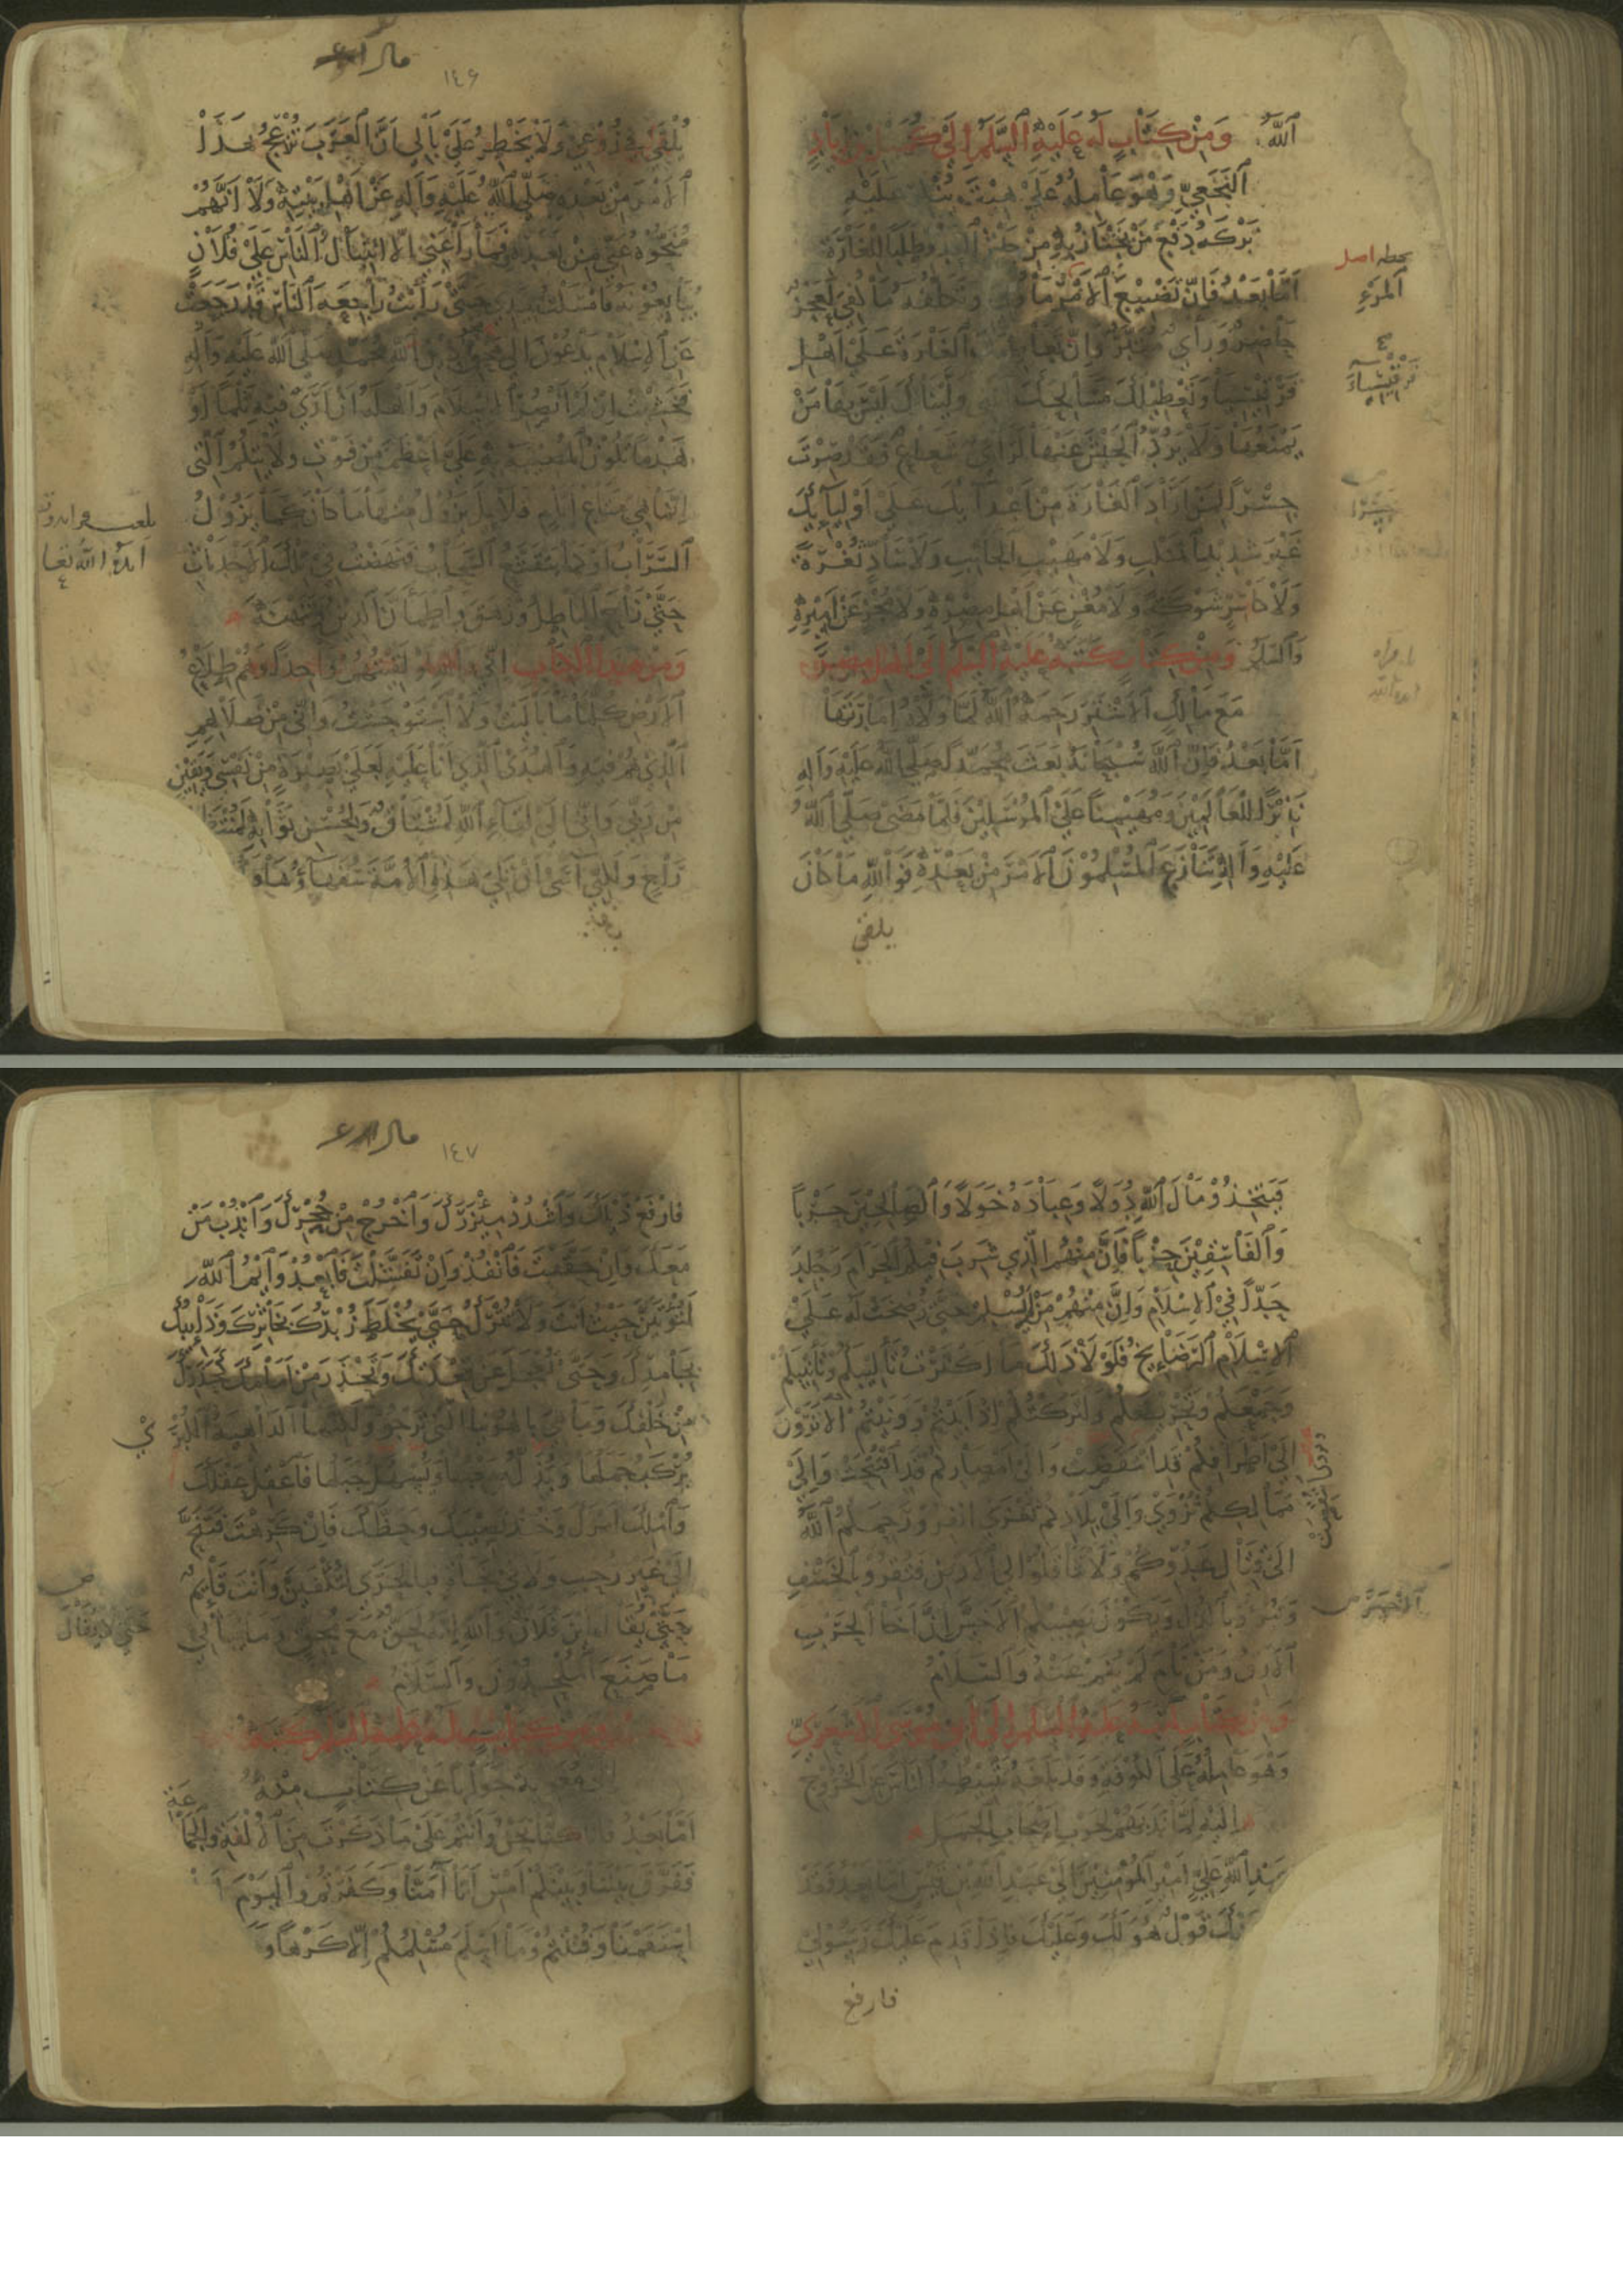 الله وَمِنْ كِتَابٍ لَهُ عَلَيْهِ السَّلَمُ إِلَى كُمَيْلِ بْنِ زِيَادٍ
النَّخَعِيِّ وَهُوَ عَامِلُهُ عَلَى هِيْتَ يُنْكِرُ عَلَيْهِ
تَرْكَهُ دَفْعَ مَنْ يَجْتَازُ بِهِ مِنْ جَيْشِ الْعَدُوِّ طَلَبًا لِلْغَارَةِ
أَمَّا بَعْدُ فَإِنَّ تَضْيِيعَ الْمَرْءِ مَا وُلِّيَ وَتَكَلُّفَهُ مَا كُفِيَ لَعَجْزٌ
حَاضِرٌ وَرَأْيٌ مُتَبَّرٌ وَإِنَّ تَعَاطِيَكَ الْغَارَةَ عَلَى أَهْلِ
قَرْقِيْسِيَا وَتَعْطِيْلَكَ مَسَالِحَكَ الَّتِي وَلَّيْنَاكَ لَيْسَ بِهَا مَنْ
يَمْنَعُهَا وَلَا يَرُدُّ الْجَيْشَ عَنْهَا لَرَأْيٌ شَعَاعٌ فَقَدْ صِرْتَ
جِسْرًا لِمَنْ أَرَادَ الْغَارَةَ مِنْ أَعْدَائِكَ عَلَى أَوْلِيَائِكَ
غَيْرَ شَدِيْدِ الْمَنْكِبِ وَلَا مَهِيْبِ الْجَانِبِ وَلَا سَادٍّ ثُغْرَةً
وَلَا كَاسِرٍ شَوْكَةً وَلَا مُغْنٍ عَنْ أَهْلِ مِصْرِهِ وَلَا مُجْزٍ عَنْ أَمِيْرِهِ
وَالسَّلَمُ وَمِنْ كِتَابٍ كَتَبَهُ عَلَيْهِ السَّلَمُ إِلَى أَهْلِ مِصْرَ
مَعَ مَالِكٍ الْأَشْتَرِ رَحِمَهُ اللهُ لَمَّا وَلَّاهُ إِمَارَتَهَا
أَمَّا بَعْدُ فَإِنَّ اللهَ سُبْحَانَهُ بَعَثَ مُحَمَّدًا صَلَّى اللهُ عَلَيْهِ وَآلِهِ
نَذِيْرًا لِلْعَالَمِيْنَ وَمُهَيْمِنًا عَلَى الْمُرْسَلِيْنَ فَلَمَّا مَضَى صَلَّى اللهُ
عَلَيْهِ وَآلِهِ تَنَازَعَ الْمُسْلِمُوْنَ الْأَمْرَ مِنْ بَعْدِهِ فَوَاللهِ مَا كَانَ
يلقى
بخطه اصل
المرء
قَرْقِيْسِيَاءَ
جِسْرًا
مالر
١٤٦
يُلْقَى فِي رُوْعِيْ وَلَا يَخْطِرُ عَلَى بَالِي أَنَّ الْعَرَبَ تُزْعِجُ هَذَا
الْأَمْرَ مِنْ بَعْدِهِ صَلَّى اللهُ عَلَيْهِ وَآلِهِ عَنْ أَهْلِ بَيْتِهِ وَلَا أَنَّهُمْ
مُنَحُّوْهُ عَنِّي مِنْ بَعْدِهِ فَمَا رَاعَنِي إِلَّا انْثِيَالُ النَّاسِ عَلَى فُلَانٍ
يُبَايِعُوْنَهُ فَأَمْسَكْتُ يَدِي حَتَّى رَأَيْتُ رَاجِعَةَ النَّاسِ قَدْ رَجَعَتْ
عَنِ الْإِسْلَامِ يَدْعُوْنَ إِلَى مَحْقِ دِيْنِ مُحَمَّدٍ صَلَّى اللهُ عَلَيْهِ وَآلِهِ
فَخَشِيْتُ إِنْ لَمْ أَنْصُرِ الْإِسْلَامَ وَأَهْلَهُ أَنْ أَرَى فِيْهِ ثَلْمًا أَوْ
هَدْمًا تَكُوْنُ الْمُصِيْبَةُ بِهِ عَلَيَّ أَعْظَمَ مِنْ فَوْتِ وِلَايَتِكُمُ الَّتِي
إِنَّمَا هِيَ مَتَاعُ أَيَّامٍ قَلَائِلَ يَزُوْلُ مِنْهَا مَا كَانَ كَمَا يَزُوْلُ
السَّرَابُ أَوْ كَمَا يَتَقَشَّعُ السَّحَابُ فَنَهَضْتُ فِي تِلْكَ الْأَحْدَاثِ
حَتَّى زَاحَ الْبَاطِلُ وَزَهَقَ وَاطْمَأَنَّ الدِّيْنُ وَتَنَهْنَهَ
وَمِنْ هَذَا الْكِتَابِ إِنِّي وَاللهِ لَوْ لَقِيْتُهُمْ وَاحِدًا وَهُمْ طِلَاعُ
الْأَرْضِ كُلِّهَا مَا بَالَيْتُ وَلَا اسْتَوْحَشْتُ وَإِنِّي مِنْ ضَلَالِهِمِ
الَّذِي هُمْ فِيْهِ وَالْهُدَى الَّذِي أَنَا عَلَيْهِ لَعَلَى بَصِيْرَةٍ مِنْ نَفْسِي وَيَقِيْنٍ
مِنْ رَبِّي وَإِنِّي إِلَى لِقَاءِ اللهِ لَمُشْتَاقٌ وَلِحُسْنِ ثَوَابِهِ لَمُنْتَظِرٌ
رَاجٍ وَلَكِنِّي آسَى أَنْ يَلِيَ هَذِهِ الْأُمَّةَ سُفَهَاؤُهَا وَ
فَيَتَّخِذُوْا مَالَ اللهِ دُوَلًا وَعِبَادَهُ خَوَلًا وَالصَّالِحِيْنَ حَرْبًا
وَالْفَاسِقِيْنَ حِزْبًا فَإِنَّ مِنْهُمُ الَّذِي شَرِبَ فِيْكُمُ الْحَرَامَ وَجُلِدَ
حَدًّا فِي الْإِسْلَامِ وَإِنَّ مِنْهُمْ مَنْ لَمْ يُسْلِمْ حَتَّى رُضِخَتْ لَهُ عَلَى
الْإِسْلَامِ الرَّضَائِخُ فَلَوْلَا ذَلِكَ مَا أَكْثَرْتُ تَأْلِيْبَكُمْ وَتَأْنِيْبَكُمْ
وَجَمْعَكُمْ وَتَحْرِيْضَكُمْ وَلَتَرَكْتُكُمْ إِذْ أَبَيْتُمْ وَوَنَيْتُمْ أَلَا تَرَوْنَ
إِلَى أَطْرَافِكُمْ قَدِ انْتَقَصَتْ وَإِلَى أَمْصَارِكُمْ قَدِ افْتُتِحَتْ وَإِلَى
مَمَالِكِكُمْ تُزْوَى وَإِلَى بِلَادِكُمْ تُغْزَى انْفِرُوْا رَحِمَكُمُ اللهُ
إِلَى قِتَالِ عَدُوِّكُمْ وَلَا تَثَّاقَلُوْا إِلَى الْأَرْضِ فَتُقِرُّوْا بِالْخَسْفِ
وَتَبُوْءُوْا بِالذُّلِّ وَيَكُوْنَ نَصِيْبُكُمُ الْأَخَسَّ إِنَّ أَخَا الْحَرْبِ
الْأَرِقُ وَمَنْ نَامَ لَمْ يُنَمْ عَنْهُ وَالسَّلَامُ
وَمِنْ كِتَابٍ لَهُ عَلَيْهِ السَّلَمُ إِلَى أَبِي مُوْسَى الْأَشْعَرِيِّ
وَهُوَ عَامِلُهُ عَلَى الْكُوْفَةِ وَقَدْ بَلَغَهُ تَثْبِيْطُهُ النَّاسَ عَنِ الْخُرُوْجِ
إِلَيْهِ لَمَّا نَدَبَهُمْ لِحَرْبِ أَصْحَابِ الْجَمَلِ
عَبْدِ اللهِ عَلِيٍّ أَمِيْرِ الْمُؤْمِنِيْنَ إِلَى عَبْدِ اللهِ بْنِ قَيْسٍ أَمَّا بَعْدُ فَقَدْ
عَنْكَ قَوْلٌ هُوَ لَكَ وَعَلَيْكَ فَإِذَا قَدِمَ عَلَيْكَ رَسُوْلِي
فارفع
مالر
١٤٧
فَارْفَعْ ذَيْلَكَ وَاشْدُدْ مِئْزَرَكَ وَاخْرُجْ مِنْ جُحْرِكَ وَانْدُبْ مَنْ
مَعَكَ فَإِنْ حَقَّقْتَ فَانْفُذْ وَإِنْ تَفَشَّلْتَ فَابْعُدْ وَايْمُ اللهِ
لَتُؤْتَيَنَّ حَيْثُ أَنْتَ وَلَا تُتْرَكُ حَتَّى يُخْلَطَ زُبْدُكَ بِخَاثِرِكَ وَذَائِبُكَ
بِجَامِدِكَ وَحَتَّى تُعْجَلَ عَنْ قِعْدَتِكَ وَتَحْذَرَ مِنْ أَمَامِكَ كَحَذَرِكَ
مِنْ خَلْفِكَ وَمَا هِيَ بِالْهُوَيْنَا الَّتِي تَرْجُوْ وَلَكِنَّهَا الدَّاهِيَةُ الْكُبْرَى
يُرْكَبُ جَمَلُهَا وَيُذَلُّ صَعْبُهَا وَيُسَهَّلُ جَبَلُهَا فَاعْقِلْ عَقْلَكَ
وَامْلِكْ أَمْرَكَ وَخُذْ نَصِيْبَكَ وَحَظَّكَ فَإِنْ كَرِهْتَ فَتَنَحَّ
إِلَى غَيْرِ رَحْبٍ وَلَا فِي نَجَاةٍ فَبِالْحَرَى لَتُكْفَيَنَّ وَأَنْتَ نَائِمٌ
حَتَّى يُقَالَ أَيْنَ فُلَانٌ وَاللهِ إِنَّهُ لَحَقٌّ مَعَ مُحِقٍّ وَمَا يُبَالِي
مَا صَنَعَ الْمُلْحِدُوْنَ وَالسَّلَامُ
وَمِنْ كِتَابٍ لَهُ عَلَيْهِ السَّلَمُ كَتَبَهُ
جَوَابًا عَنْ كِتَابٍ مِنْهُ
أَمَّا بَعْدُ فَإِنَّا كُنَّا نَحْنُ وَأَنْتُمْ عَلَى مَا ذَكَرْتَ مِنَ الْأُلْفَةِ وَالْجَمَاعَةِ
فَفَرَّقَ بَيْنَنَا وَبَيْنَكُمْ أَمْسِ أَنَّا آمَنَّا وَكَفَرْتُمْ وَالْيَوْمَ
اسْتَقَمْنَا وَفُتِنْتُمْ وَمَا أَسْلَمَ مُسْلِمُكُمْ إِلَّا كَرْهًا وَ
حَتَّى لَا يُقَالَ